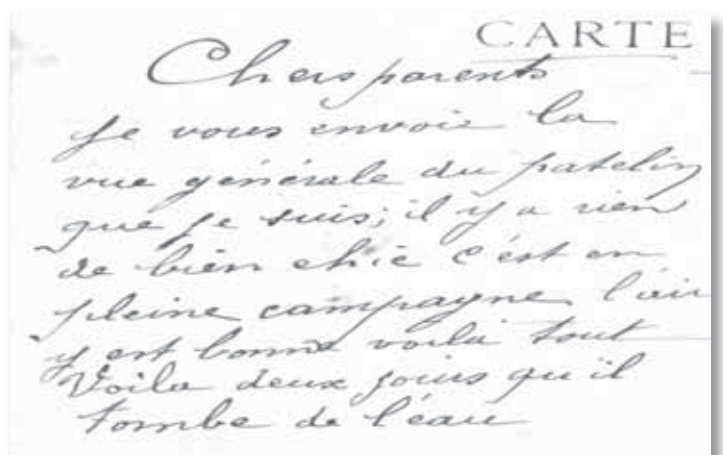 CARTE
Chers parents
Je vous envoie la
vue générale du patelin
que je suis; il y a rien
de bien chic c'est en
pleine campagne l'air
y est bonne voilà tout
Voila deux jours qu'il
tombe de l'eau